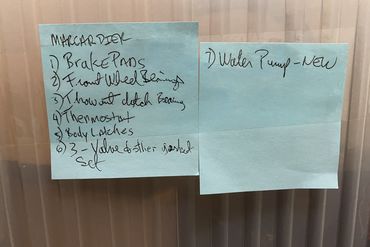 MARCARDIEK
1) Brake Pads
2) Front Wheel Bearings
3) Thowout clutch Bearing
4) Thermostat
5) Body Latches
6) 3 - Valve & other gasket
Set
7) Water Pump - NEW